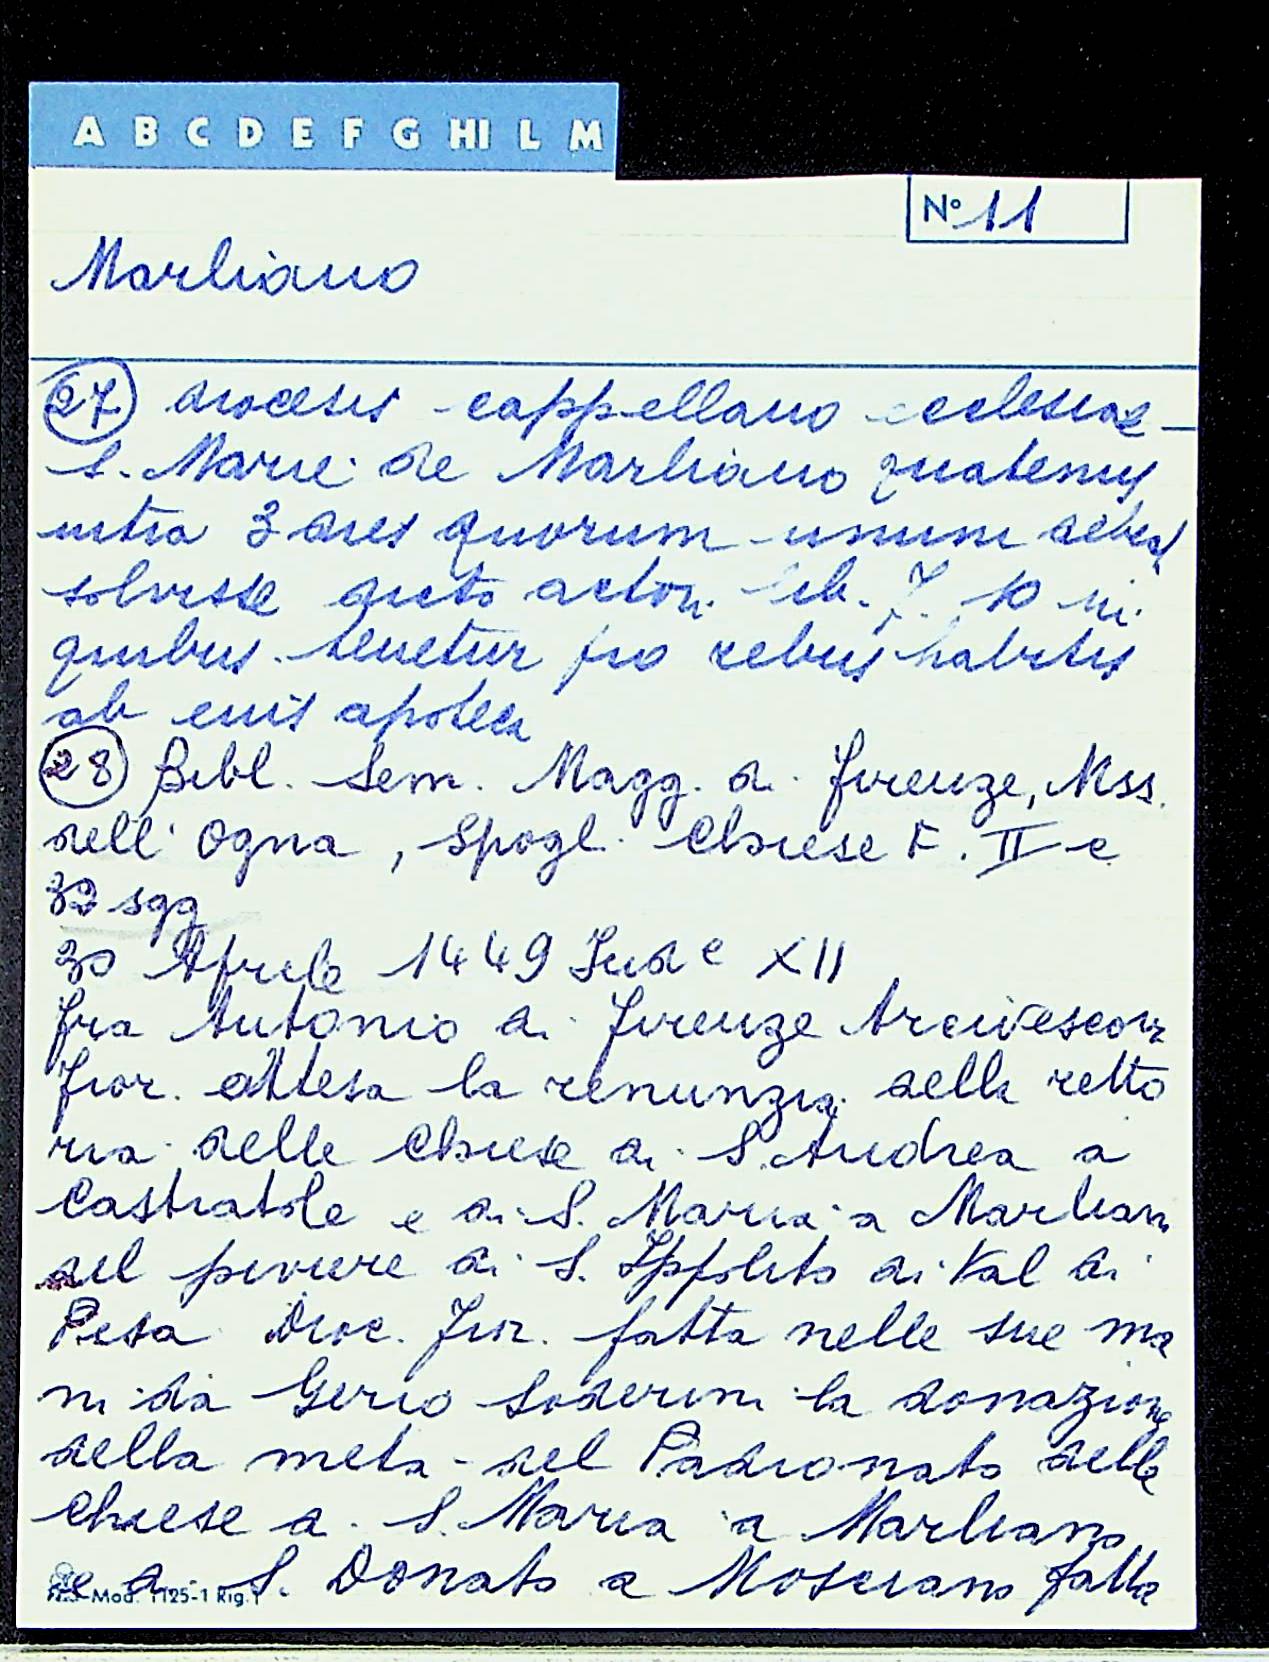 A B C D E F G HI L M
N° 11
Marliano
27 diocesis cappellano ecclesiae
S. Marie de Marliano quatenus
intra 3 dies quorum unum debea
solvisse dicto actori lib. 7. 10 in
quibus tenetur pro rebus habitis
ab eius apoteca
28 Bibl. Sem. Magg. di Firenze, Mss.
dell'Ogna, Spogl. Chiese F. II c
32 sgg
30 Aprile 1449 Ind e XII
fra Antonio di Firenze Arcivescov
fior. attesa la renunzia della retto
ria delle Chiese di S. Andrea a
Castratole e di S. Maria a Marlian
del piviere di S. Ippolito di Val di
Pesa Dioc. Fior. fatta nelle sue ma
ni da Gerio Soderini la donazione
della metà del Padronato delle
Chiese di S. Maria a Marliano
e di S. Donato a Mosciano fatta
Mod. 1125-1 Rig.1